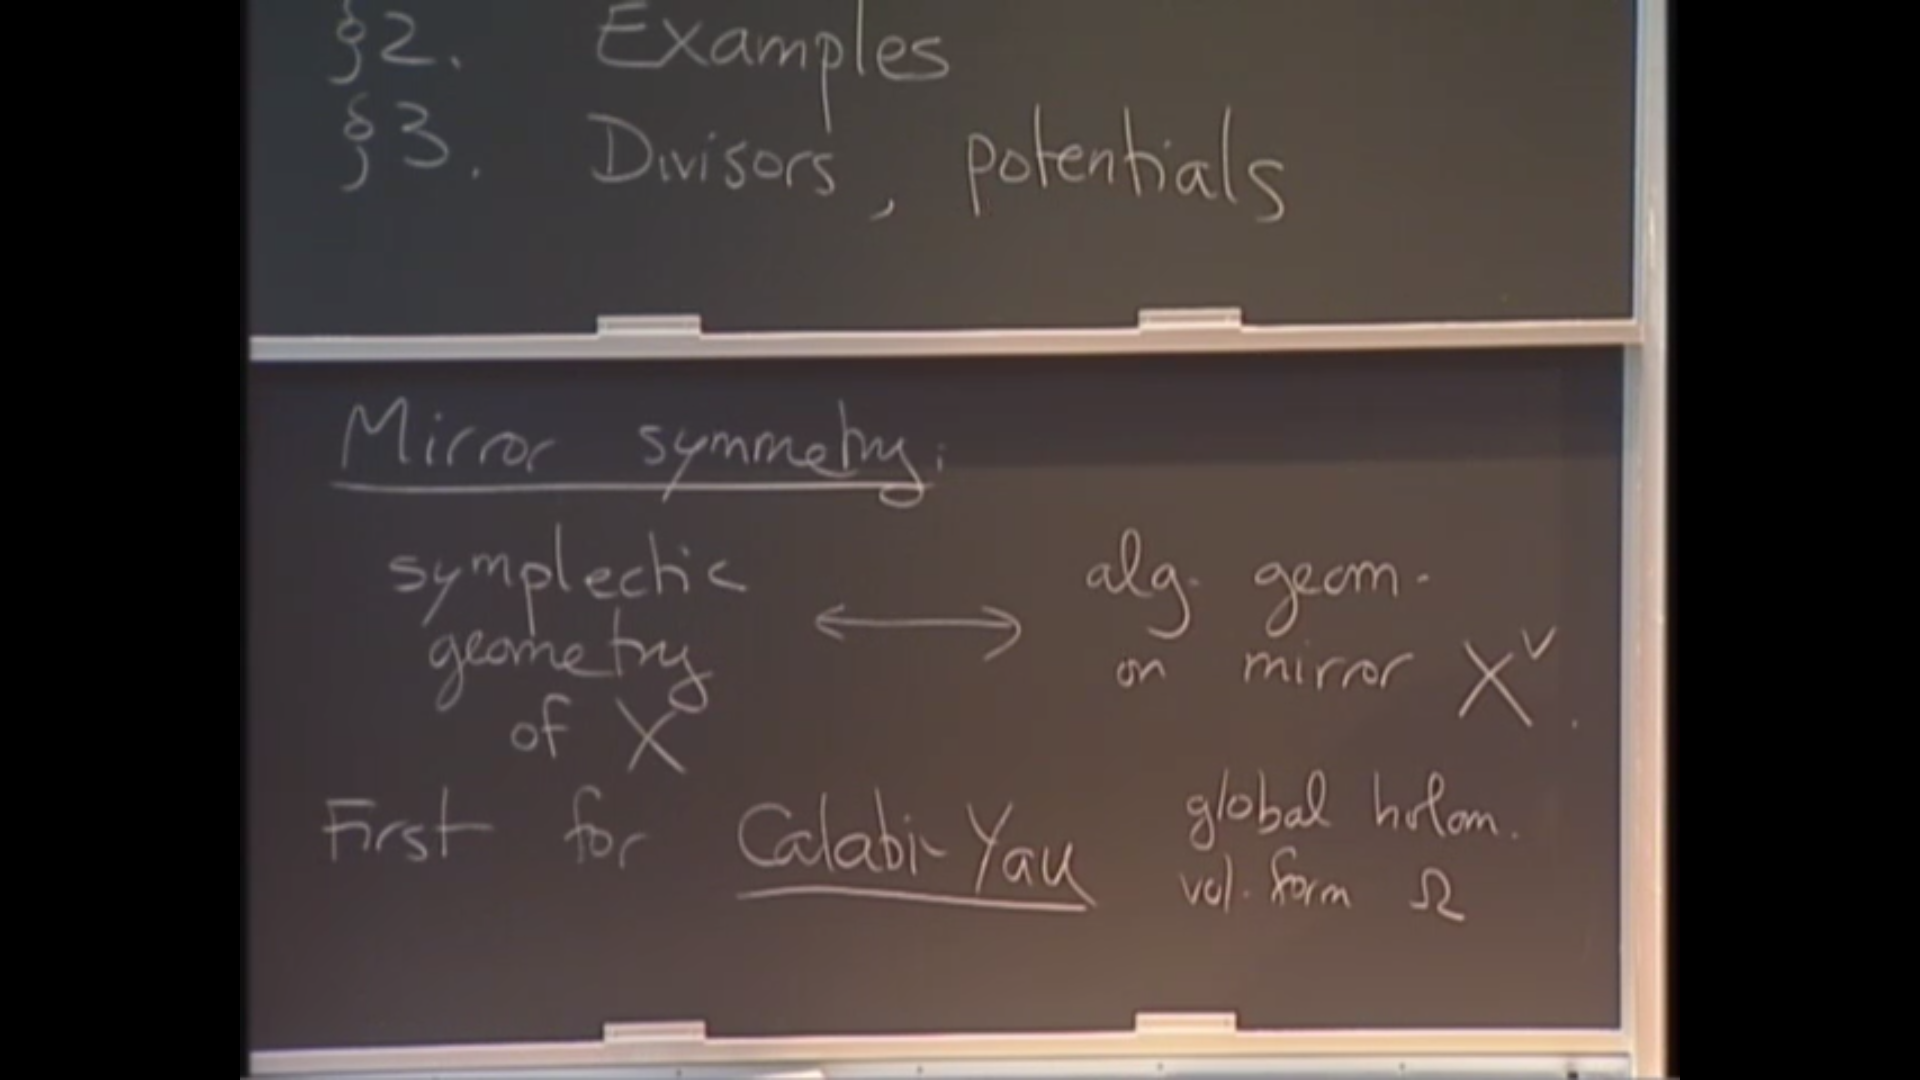 §2. Examples
§3. Divisors, potentials
Mirror symmetry:
symplectic geometry of X ⟷ alg. geom. on mirror X^∨.
First for Calabi-Yau global holom. vol. form Ω